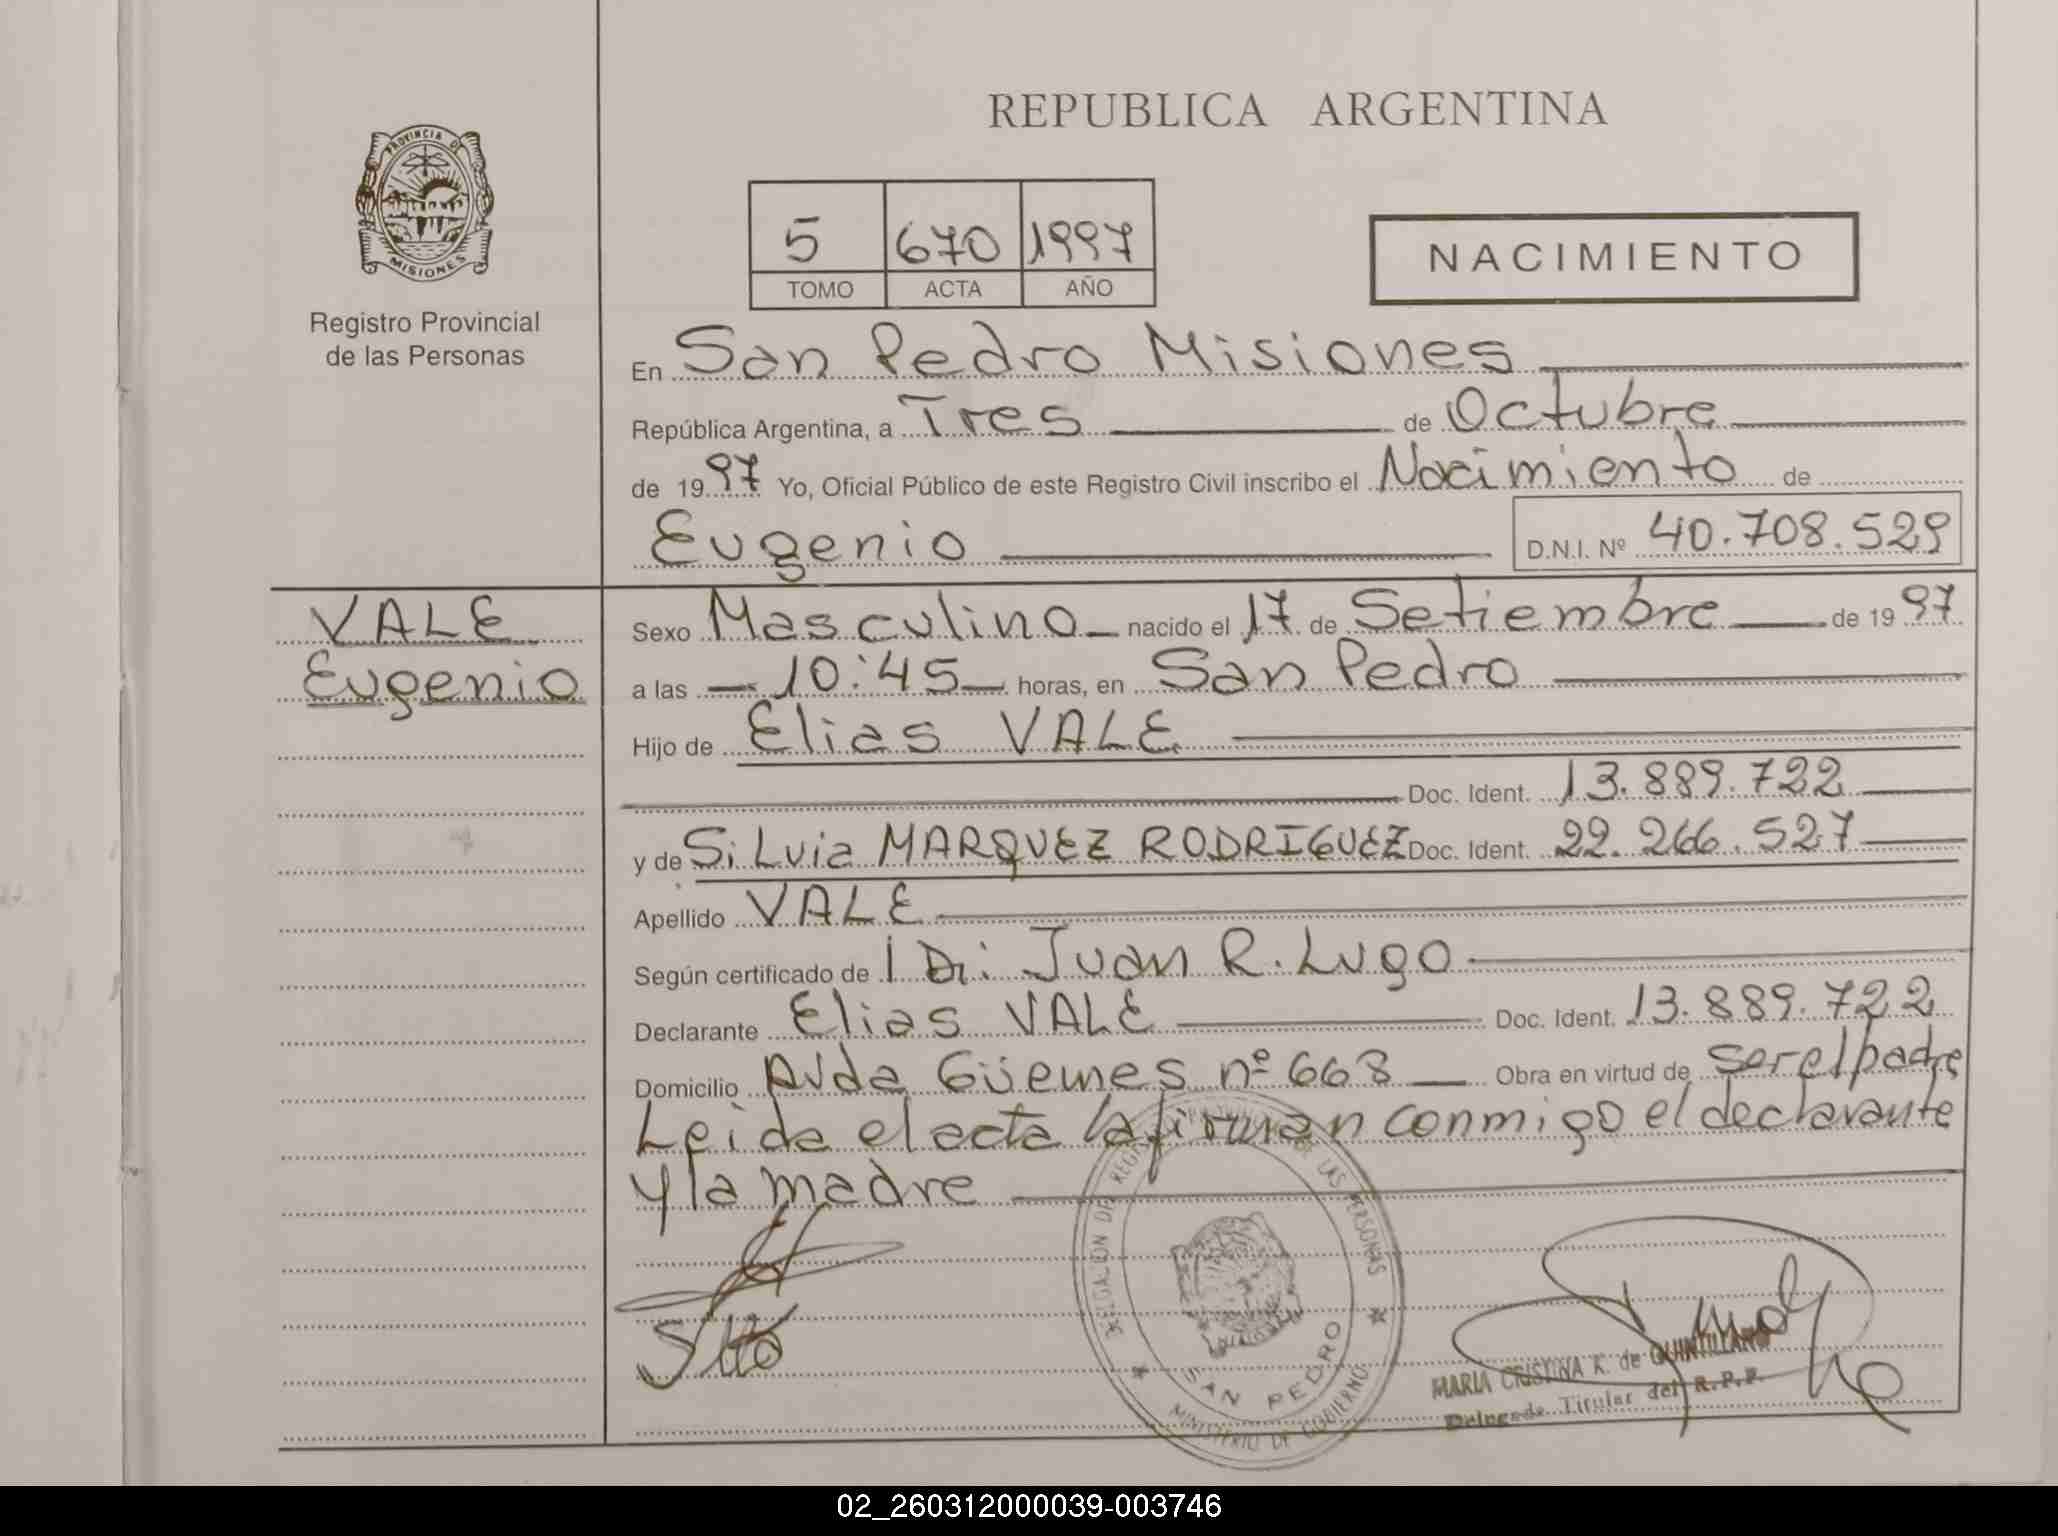 REPUBLICA ARGENTINA
PROVINCIA DE
MISIONES
Registro Provincial
de las Personas
5 670 1997
TOMO ACTA AÑO
NACIMIENTO
En San Pedro Misiones
República Argentina, a Tres de Octubre
de 1997 Yo, Oficial Público de este Registro Civil inscribo el Nacimiento de
Eugenio D.N.I. Nº 40.708.529
VALE
Eugenio
Sexo Masculino nacido el 17 de Setiembre de 1997
a las 10:45 horas, en San Pedro
Hijo de Elias VALE
Doc. Ident. 13.889.722
y de Silvia MARQUEZ RODRIGUEZ Doc. Ident. 22.266.527
Apellido VALE
Según certificado de Juan R. Lugo
Declarante Elias VALE Doc. Ident. 13.889.722
Domicilio Avda Güemes nº 668 Obra en virtud de ser el padre
Leida el acta la firman conmigo el declarante
y la madre
DE LAS PERSONAS
SAN PEDRO
MINISTERIO DE GOBIERNO
MARIA CRISTINA K. de QUINTILLANO
Delegada Titular del R.P.P.
02_260312000039-003746